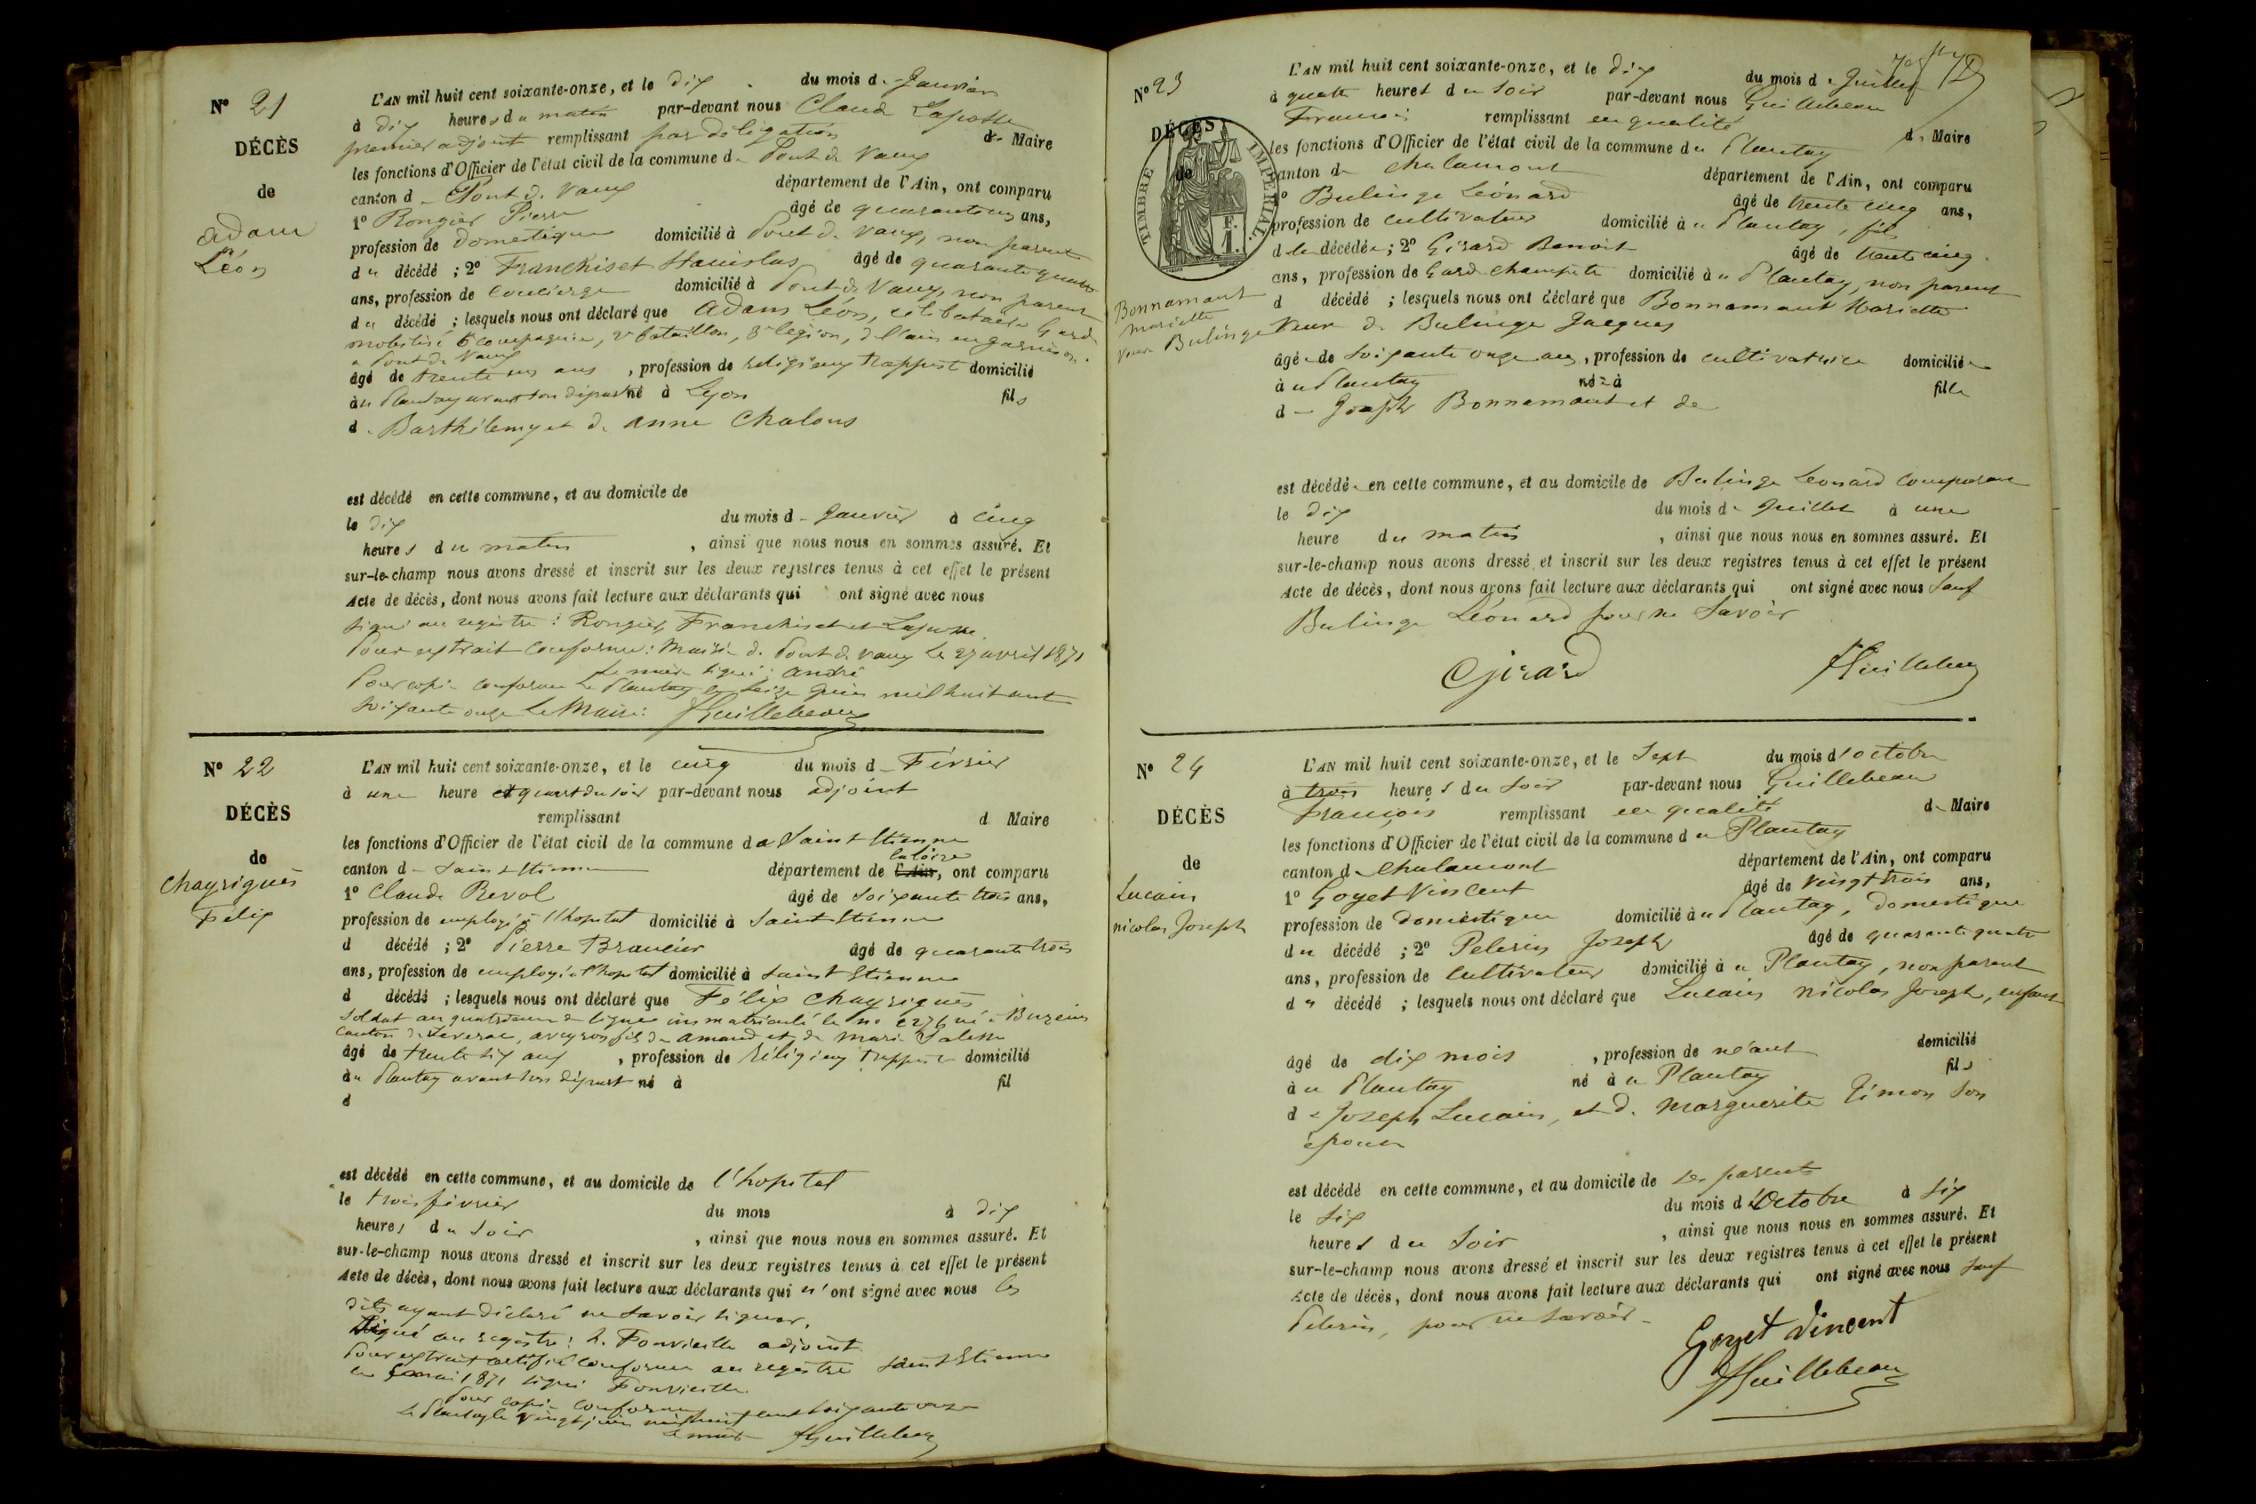 N° 21
DÉCÈS
de
adam
Léon
L'AN mil huit cent soixante-onze, et le dix du mois de Janvier
à dix heures du matin par-devant nous Claude Laposse
premier adjoint remplissant par délégation de Maire
les fonctions d'Officier de l'état civil de la commune de Pont de Vaux
canton de Pont de Vaux département de l'Ain, ont comparu
1° Rongier Pierre âgé de quarante ans,
profession de domestique domicilié à Pont de Vaux, non parent
du décédé ; 2° Franchiset Stanislas âgé de quarante quatre
ans, profession de concierge domicilié à Pont de Vaux, non parent
du décédé ; lesquels nous ont déclaré que Adam Léon, célibataire Garde
mobilisé 6 compagnie, 2e bataillon, 3e légion, de l'ain en garnison
a Pont de Vaux
âgé de trente ans, profession de religieux trappist domicilié
au Plantay avant son départ né à Lyon fils
d. Barthélemy et de anne Chalons
est décédé en cette commune, et au domicile de
le dix du mois de Janvier à cinq
heures du matin, ainsi que nous nous en sommes assuré. Et
sur-le-champ nous avons dressé et inscrit sur les deux registres tenus à cet effet le présent
Acte de décès, dont nous avons fait lecture aux déclarants qui ont signé avec nous
signé au registre : Rongier, Franchiset et Laposse.
Pour extrait conforme : Mairie de Pont de Vaux le 27 avril 1871
le maire signé : André
Pour copie conforme Le Plantay le seize Juin mil huit cent
soixante onze Le Maire: Guillebeau
N° 22
DÉCÈS
de
Chayrigues
Félix
L'AN mil huit cent soixante-onze, et le cinq du mois de Février
à une heure et quart du soir par-devant nous adjoint
remplissant d Maire
les fonctions d'Officier de l'état civil de la commune de Saint Etienne
canton de Saint Etienne département de l'Ain la loire, ont comparu
1° Claude Revol âgé de soixante trois ans,
profession de employé à l'hopital domicilié à Saint Etienne
d décédé ; 2° Pierre Brancier âgé de quarante trois
ans, profession de employé a l'hopital domicilié à Saint Etienne
d décédé ; lesquels nous ont déclaré que Félix Chayrigues
soldat au quatrième de ligne immatriculé le no 2276 né à Buzeins
canton de Severac, aveyron fils de amand et de marie Salesse
âgé de trente six ans, profession de Religieux trappiste domicilié
au Plantay avant son départ né à fil
d
est décédé en cette commune, et au domicile de l'hopital
le trois février du mois à dix
heures du soir, ainsi que nous nous en sommes assuré. Et
sur-le-champ nous avons dressé et inscrit sur les deux registres tenus à cet effet le présent
Acte de décès, dont nous avons fait lecture aux déclarants qui n'ont signé avec nous les
dits ayant déclaré ne savoir signer.
Signé au registre : Fonvieille adjoint.
Pour extrait certifié conforme au registre Saint Etienne
mai 1871 signé Fonvieille
Pour copie conforme
le Plantay le vingt juin mil huit cent soixante onze
Le maire Guillebeau
N° 23
DÉCÈS
de
TIMBRE IMPÉRIAL.
Bonnamant
Mariette
veuve Bulinge
L'AN mil huit cent soixante-onze, et le dix du mois de Juillet
à quatre heures du soir par-devant nous Guillebeau
François remplissant en qualité de Maire
les fonctions d'Officier de l'état civil de la commune du Plantay
canton de Chalamont département de l'Ain, ont comparu
1° Bulinge Léonard âgé de trente cinq ans,
profession de cultivateur domicilié à u Plantay, fils
de la décédée ; 2° Girard Benoit âgé de trente cinq
ans, profession de Garde champetre domicilié à u Plantay, non parent
d décédé ; lesquels nous ont déclaré que Bonnamant Mariette
Veuve de Bulinge Jacques
âgée de soixante onze ans, profession de cultivatrice domiciliée
à u Plantay née à fille
de Joseph Bonnamant et de
est décédée en cette commune, et au domicile de Bulinge Léonard comparant
le dix du mois de Juillet à une
heure du matin, ainsi que nous nous en sommes assuré. Et
sur-le-champ nous avons dressé et inscrit sur les deux registres tenus à cet effet le présent
Acte de décès, dont nous avons fait lecture aux déclarants qui ont signé avec nous sauf
Bulinge Léonard pour ne savoir
Girard Guillebeau
N° 24
DÉCÈS
de
Lucain
nicolas Joseph
L'AN mil huit cent soixante-onze, et le sept du mois d'octobre
à trois heures du soir par-devant nous Guillebeau
François remplissant en qualité de Maire
les fonctions d'Officier de l'état civil de la commune du Plantay
canton de Chalamont département de l'Ain, ont comparu
1° Goyet Vincent âgé de vingt trois ans,
profession de domestique domicilié à u Plantay, domestique
du décédé ; 2° Pelerin Joseph âgé de quarante quatre
ans, profession de cultivateur domicilié à u Plantay, non parent
du décédé ; lesquels nous ont déclaré que Lucain nicolas Joseph, enfant
âgé de dix mois, profession de néant domicilié
à u Plantay né à u Plantay fils
de Joseph Lucain, et de Marguerite Timon son
épouse
est décédé en cette commune, et au domicile de ses parents
le six du mois d'Octobre à six
heures du soir, ainsi que nous nous en sommes assuré. Et
sur-le-champ nous avons dressé et inscrit sur les deux registres tenus à cet effet le présent
Acte de décès, dont nous avons fait lecture aux déclarants qui ont signé avec nous sauf
Pelerin, pour ne savoir
Goyet Vincent
Guillebeau